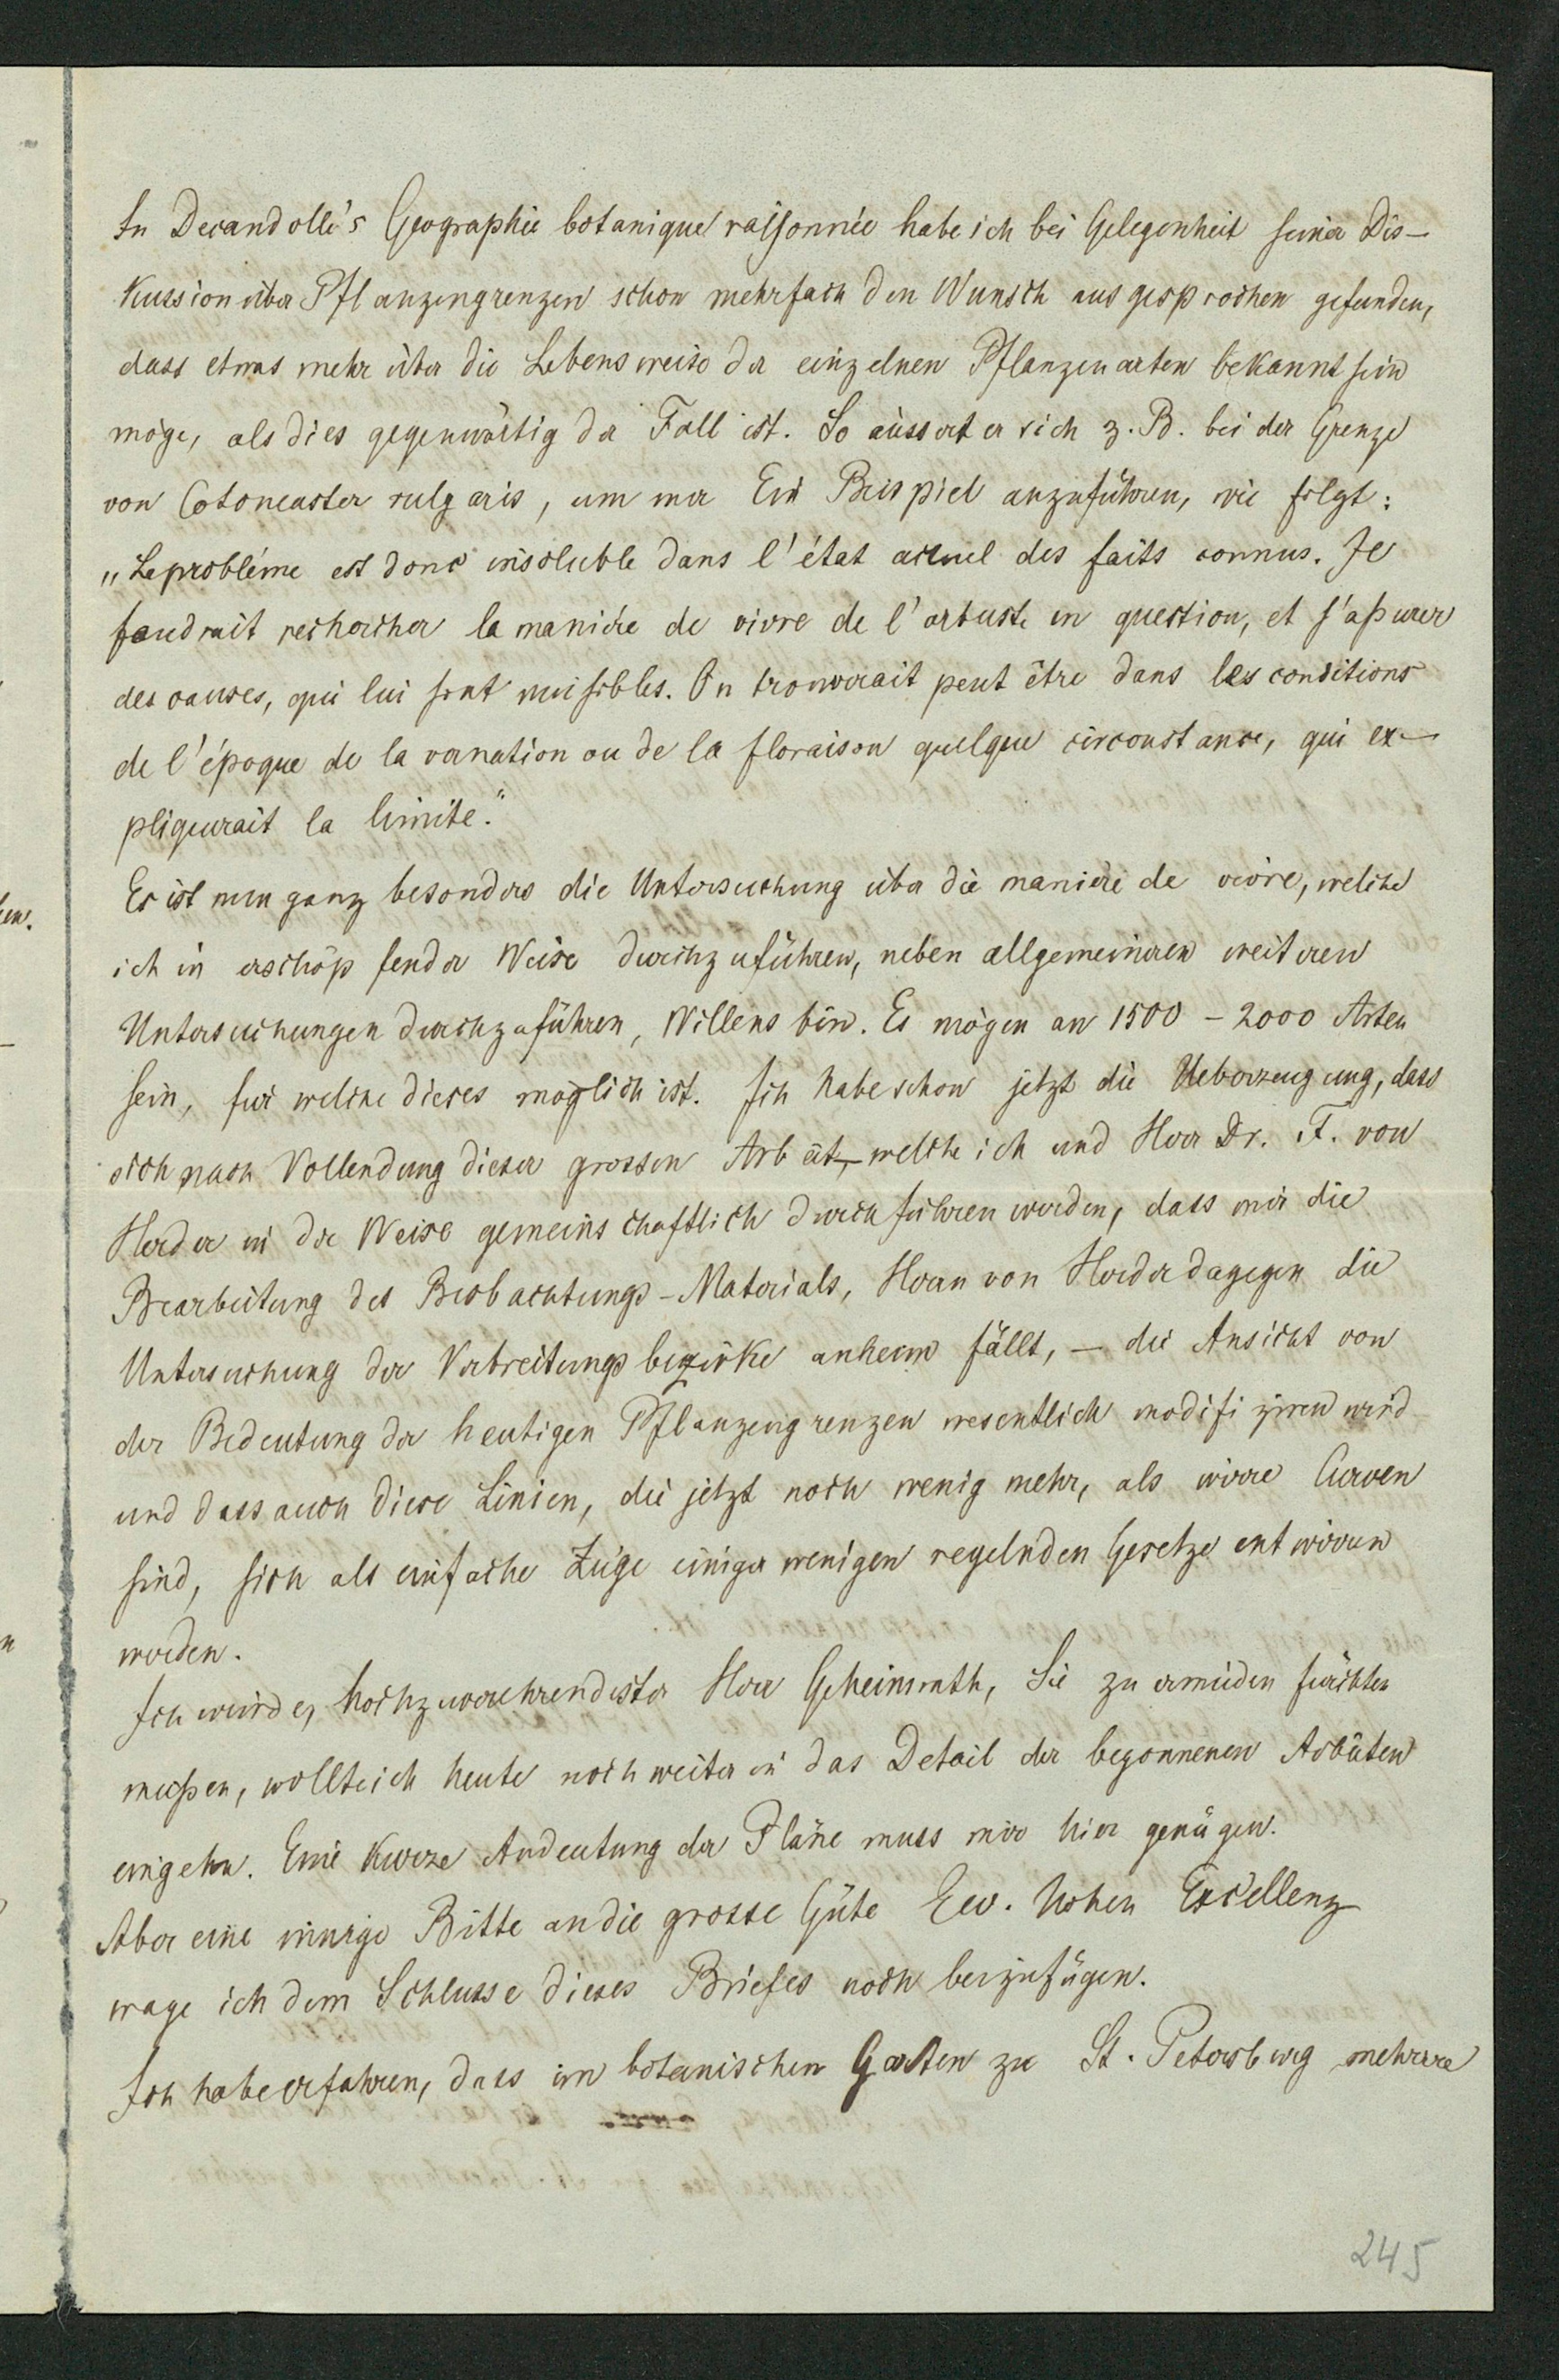 In Decandolle's Geographie botanique raisonnée habe ich bei Gelegenheit seiner Dis-
kussion über Pflanzengrenzen schon mehrfach den Wunsch ausgesprochen gefunden,
dass etwas mehr über die Lebensweise der einzelnen Pflanzenarten bekannt sein
möge, als dies gegenwärtig der Fall ist. So äussert er sich z. B. bei der Grenze
von Cotoneaster vulgaris, um nur Ein Beispiel anzuführen, wie folgt:
„Le probléme est donc insoluble dans l'état actuel des faits connus. Il
faudrait rechercher la maniére de vivre de l'arbuste en question, et s'assurer
des causes, qui lui sont nuisibles. On trouverait peut être dans les conditions
de l'époque de la vernation ou de la floraison quelque circonstance, qui ex-
pliquerait la limite."
Es ist nun ganz besonders die Untersuchung über die maniére de vivre, welche
ich in erschöpfender Weise durchzuführen, neben allgemeineren weiteren
Untersuchungen durchzuführen, Willens bin. Es mögen an 1500 - 2000 Arten
sein, für welche dieses möglich ist. Ich habe schon jetzt die Ueberzeugung, dass
sich nach Vollendung dieser grossen Arbeit, - welche ich und Herr Dr. F. von
Herder in der Weise gemeinschaftlich durchführen werden, dass mir die
Bearbeitung des Beobachtungs-Materials, Herrn von Herder dagegen die
Untersuchung der Verbreitungsbezirke anheim fällt, - die Ansicht von
der Bedeutung der heutigen Pflanzengrenzen wesentlich modifiziren wird
und dass auch diese Linien, die jetzt noch wenig mehr, als wirre Curven
sind, sich als einfache Züge einiger wenigen regelnden Gesetze entwirren
werden.
Ich würde, hochzuverehrendster Herr Geheimrath, Sie zu ermüden fürchten
müssen, wollte ich heute noch weiter in das Detail der begonnenen Arbeiten
eingehn. Eine kurze Andeutung der Pläne muss mir hier genügen.
Aber eine innige Bitte an die grosse Güte Ew. hohen Excellenz
wage ich dem Schlusse dieses Briefes noch beizufügen.
Ich habe erfahren, dass im botanischen Garten zu St. Petersburg mehrere
245